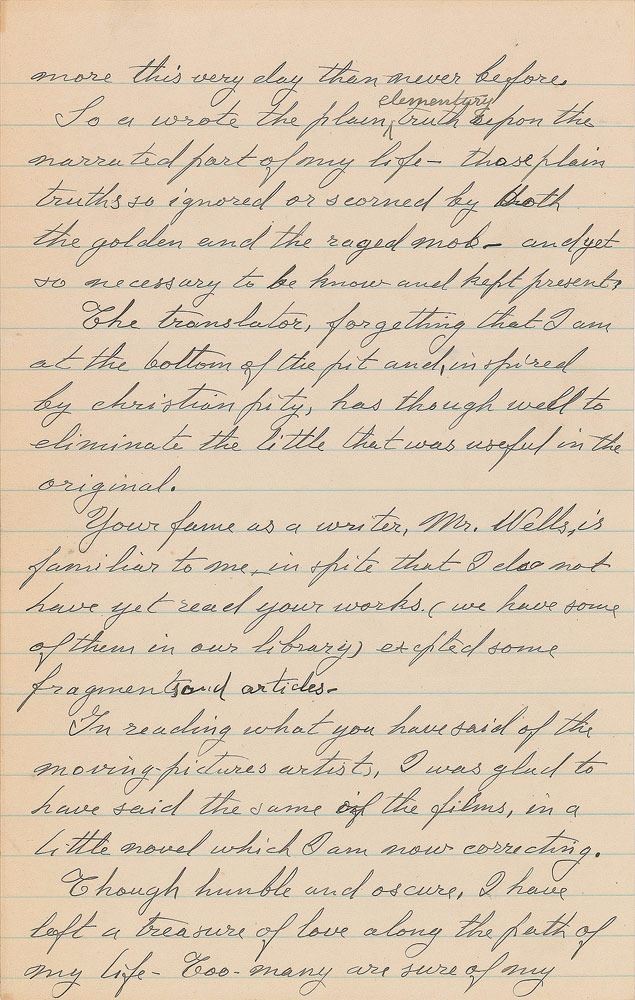 more this very day than never before.
elementary
So a wrote the plain, truth upon the
narrated part of my life - those plain
truths so ignored or scorned by both
the golden and the raged mob - and yet
so necessary to be know and kept present.
The translator, forgetting that I am
at the bottom of the pit and, inspired
by christian pity, has though well to
eliminate the little that was useful in the
original.
Your fame as a writer, Mr. Wells, is
familiar to me, in spite that I do not
have yet read your works. (we have some
of them in our library) excpted some
fragments and articles-
In reading what you have said of the
moving-pictures artists, I was glad to
have said the same of the films, in a
little novel which I am now correcting.
Though humble and oscure, I have
left a treasure of love along the path of
my life - Too-many are sure of my